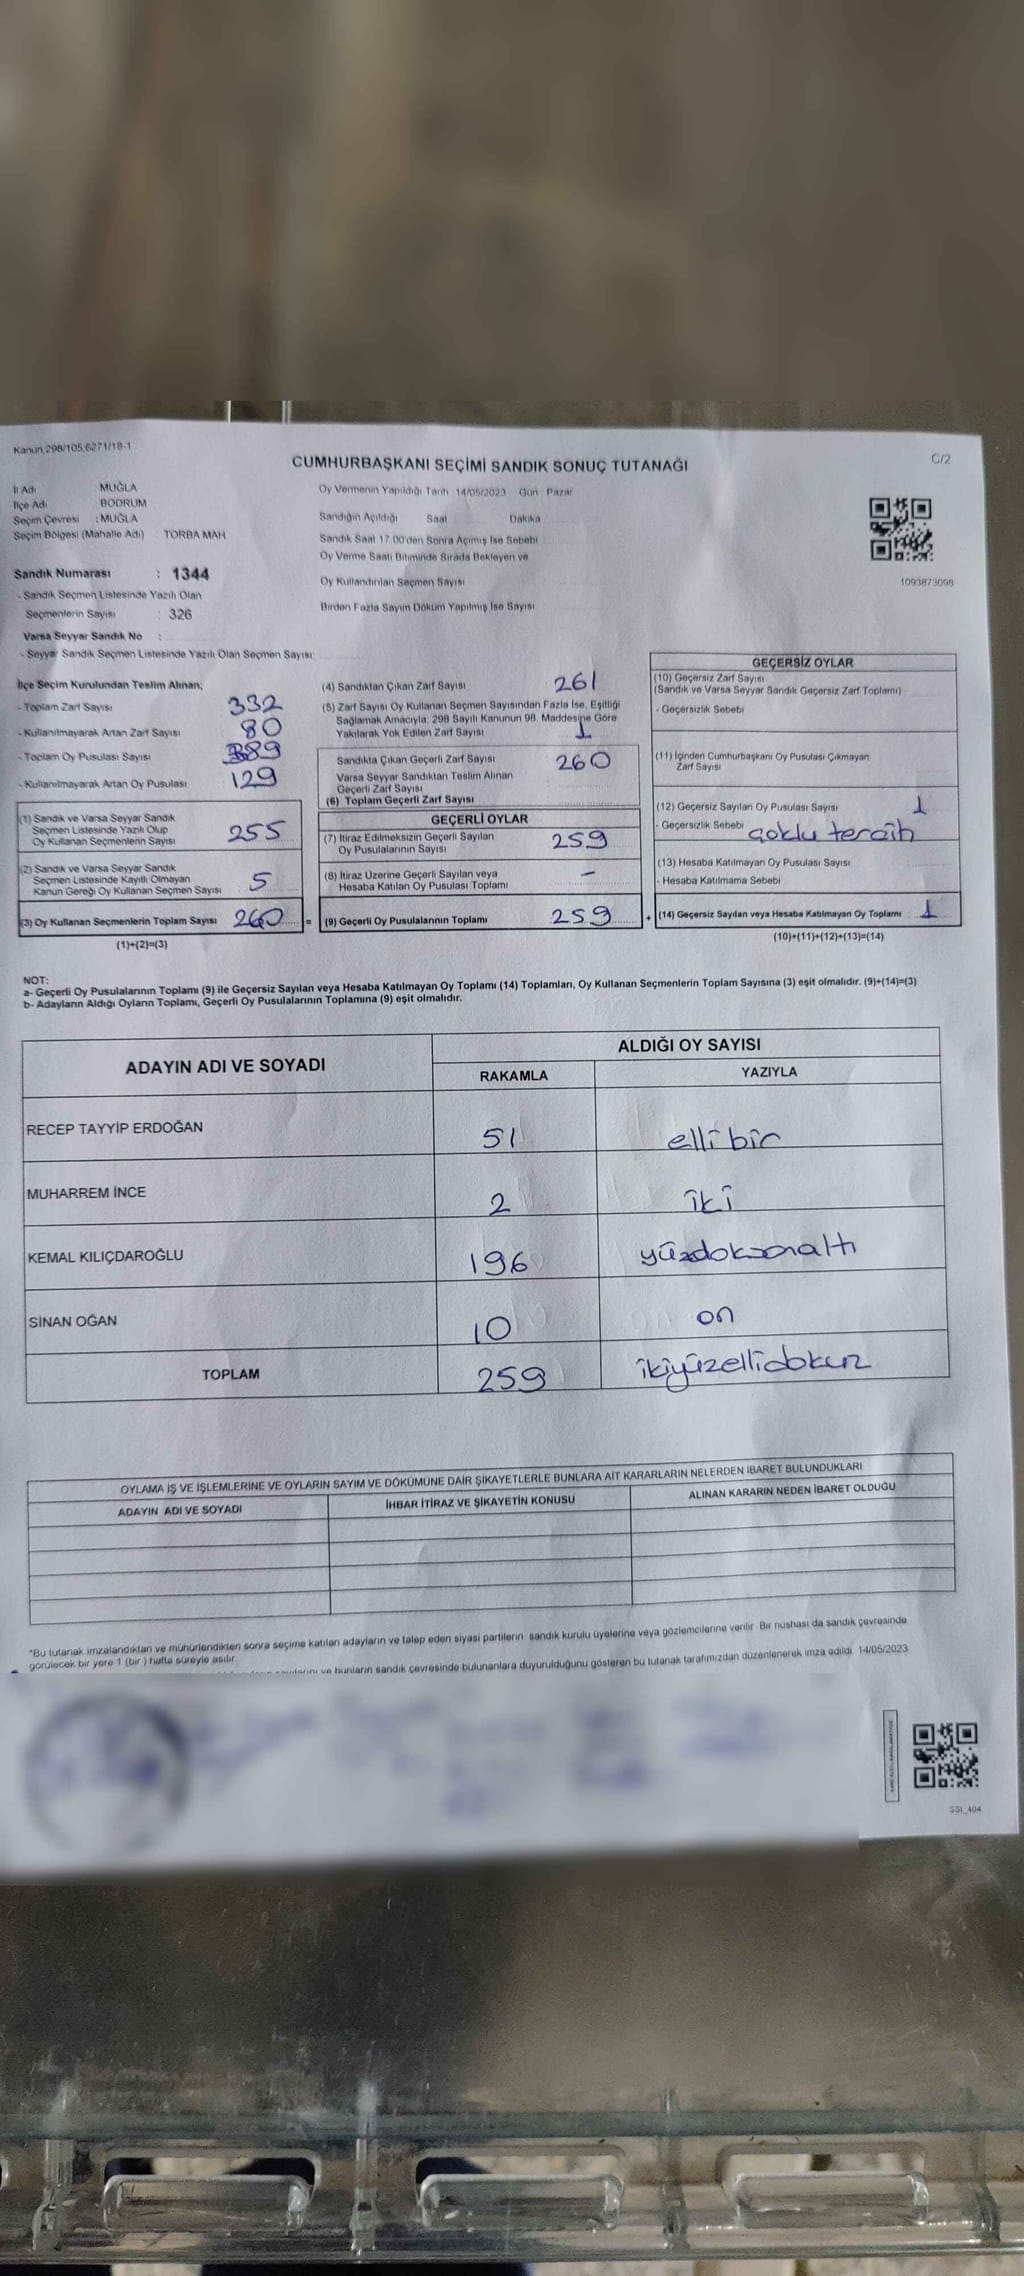 Kanun,298/105,6271/18-1
C/2
CUMHURBAŞKANI SEÇİMİ SANDIK SONUÇ TUTANAĞI
İl Adı MUĞLA
İlçe Adı BODRUM
Seçim Çevresi : MUĞLA
Seçim Bölgesi (Mahalle Adı) TORBA MAH.
Sandık Numarası : 1344
- Sandık Seçmen Listesinde Yazılı Olan
Seçmenlerin Sayısı : 326
Varsa Seyyar Sandık No :
- Seyyar Sandık Seçmen Listesinde Yazılı Olan Seçmen Sayısı:
Oy Vermenin Yapıldığı Tarih 14/05/2023 Gün Pazar
Sandığın Açıldığı Saat Dakika
Sandık Saat 17.00'den Sonra Açılmış İse Sebebi
Oy Verme Saati Bitiminde Sırada Bekleyen ve
Oy Kullandırılan Seçmen Sayısı
Birden Fazla Sayım Döküm Yapılmış İse Sayısı
1093873098
İlçe Seçim Kurulundan Teslim Alınan;
- Toplam Zarf Sayısı 332
- Kullanılmayarak Artan Zarf Sayısı 80
- Toplam Oy Pusulası Sayısı 389
- Kullanılmayarak Artan Oy Pusulası 129
(1) Sandık ve Varsa Seyyar Sandık
Seçmen Listesinde Yazılı Olup
Oy Kullanan Seçmenlerin Sayısı 255
(2) Sandık ve Varsa Seyyar Sandık
Seçmen Listesinde Kayıtlı Olmayan
Kanun Gereği Oy Kullanan Seçmen Sayısı 5
(3) Oy Kullanan Seçmenlerin Toplam Sayısı 260 =
(1)+(2)=(3)
(4) Sandıktan Çıkan Zarf Sayısı 261
(5) Zarf Sayısı Oy Kullanan Seçmen Sayısından Fazla İse, Eşitliği
Sağlamak Amacıyla, 298 Sayılı Kanunun 98. Maddesine Göre
Yakılarak Yok Edilen Zarf Sayısı 1
Sandıkta Çıkan Geçerli Zarf Sayısı 260
Varsa Seyyar Sandıktan Teslim Alınan
Geçerli Zarf Sayısı
(6) Toplam Geçerli Zarf Sayısı
GEÇERLİ OYLAR
(7) İtiraz Edilmeksizin Geçerli Sayılan
Oy Pusulalarının Sayısı 259
(8) İtiraz Üzerine Geçerli Sayılan veya
Hesaba Katılan Oy Pusulası Toplamı -
(9) Geçerli Oy Pusulalarının Toplamı 259 +
GEÇERSİZ OYLAR
(10) Geçersiz Zarf Sayısı
(Sandık ve Varsa Seyyar Sandık Geçersiz Zarf Toplamı)
- Geçersizlik Sebebi
(11) İçinden Cumhurbaşkanı Oy Pusulası Çıkmayan
Zarf Sayısı
(12) Geçersiz Sayılan Oy Pusulası Sayısı 1
- Geçersizlik Sebebi çoklu tercih
(13) Hesaba Katılmayan Oy Pusulası Sayısı
- Hesaba Katılmama Sebebi
(14) Geçersiz Sayılan veya Hesaba Katılmayan Oy Toplamı 1
(10)+(11)+(12)+(13)=(14)
NOT:
a- Geçerli Oy Pusulalarının Toplamı (9) ile Geçersiz Sayılan veya Hesaba Katılmayan Oy Toplamı (14) Toplamları, Oy Kullanan Seçmenlerin Toplam Sayısına (3) eşit olmalıdır. (9)+(14)=(3)
b- Adayların Aldığı Oyların Toplamı, Geçerli Oy Pusulalarının Toplamına (9) eşit olmalıdır.
ADAYIN ADI VE SOYADI ALDIĞI OY SAYISI
RAKAMLA YAZIYLA
RECEP TAYYİP ERDOĞAN 51 elli bir
MUHARREM İNCE 2 iki
KEMAL KILIÇDAROĞLU 196 yüzdoksanaltı
SİNAN OĞAN 10 on
TOPLAM 259 ikiyüzellidokuz
OYLAMA İŞ VE İŞLEMLERİNE VE OYLARIN SAYIM VE DÖKÜMÜNE DAİR ŞİKAYETLERLE BUNLARA AİT KARARLARIN NELERDEN İBARET BULUNDUKLARI
ADAYIN ADI VE SOYADI İHBAR İTİRAZ VE ŞİKAYETİN KONUSU ALINAN KARARIN NEDEN İBARET OLDUĞU
*Bu tutanak imzalandıktan ve mühürlendikten sonra seçime katılan adayların ve talep eden siyasi partilerin sandık kurulu üyelerine veya gözlemcilerine verilir. Bir nüshası da sandık çevresinde
görülecek bir yere 1 (bir ) hafta süreyle asılır.
ve bunların sandık çevresinde bulunanlara duyurulduğunu gösteren bu tutanak tarafımızdan düzenlenerek imza edildi. 14/05/2023
SSI_404